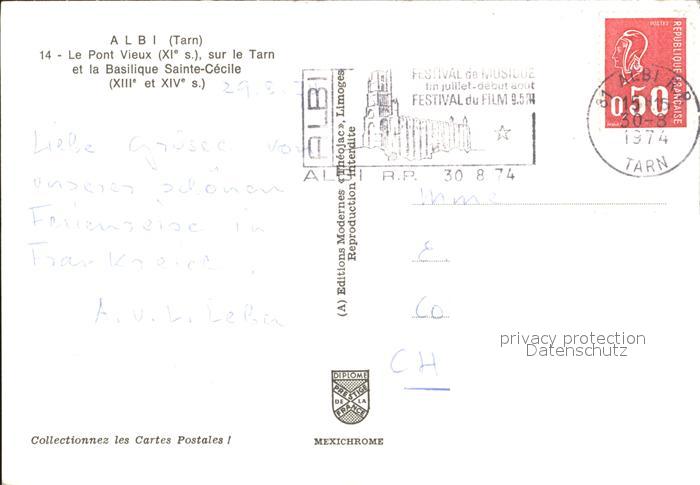 ALBI (Tarn)
14 - Le Pont Vieux (XIe s.), sur le Tarn
et la Basilique Sainte-Cécile
(XIIIe et XIVe s.)
Liebe Grüsse von
unserer schönen
Ferienreise in
Frankreich.
A. u. L.
Collectionnez les Cartes Postales !
(A) Editions Modernes « Théojac », Limoges
Reproduction Interdite
DIPLOME
PRESTIGE
DE LA
FRANCE
MEXICHROME
ALBI
FESTIVAL de MUSIQUE
fin juillet-début août
FESTIVAL du FILM 9.574
ALBI R.P. 30 8 74
POSTES
REPUBLIQUE FRANÇAISE
0,50
81 ALBI R.P.
30-8
1974
TARN
Mme
E
Co
CH
privacy protection
Datenschutz